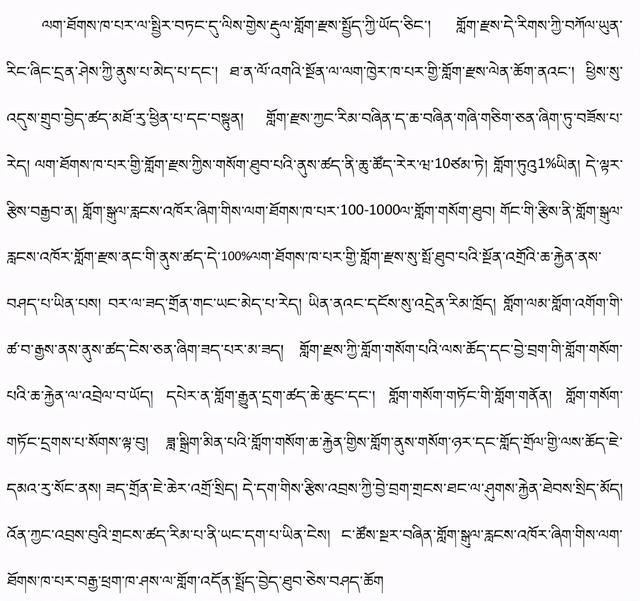 ལག་ཐོགས་ཁ་པར་ལ་སྤྱིར་བཏང་དུ་ལིས་གྱེས་རྡུལ་གློག་རྫས་སྤྱོད་ཀྱི་ཡོད་ཅིང་། གློག་རྫས་དེ་རིགས་ཀྱི་བཀོལ་ཡུན་
རིང་ཞིང་དྲན་ཤེས་ཀྱི་ནུས་པ་མེད་པ་དང་། ཐ་ན་ལོ་འགའི་སྔོན་ལ་ལག་ཁྱེར་ཁ་པར་གྱི་གློག་རྫས་ལེན་ཆོག་ནའང་། ཕྱིས་སུ་
འདུས་གྲུབ་བྱེད་ཚད་མཐོ་རུ་ཕྱིན་པ་དང་བསྟུན། གློག་རྫས་ཀྱང་རིམ་བཞིན་ད་ཆ་བཞིན་གཞི་གཅིག་ཅན་ཞིག་ཏུ་བཟོས་པ་
རེད། ལག་ཐོགས་ཁ་པར་གྱི་གློག་རྫས་ཀྱིས་གསོག་ཐུབ་པའི་ནུས་ཚད་ནི་ཆུ་ཚོད་རེར་ཝ་10ཙམ་ཏེ། གློག་ཏུའུ1%ཡིན། དེ་ལྟར་
རྩིས་བརྒྱབ་ན། གློག་སྒུལ་རླངས་འཁོར་ཞིག་གིས་ལག་ཐོགས་ཁ་པར་100-1000ལ་གློག་གསོག་ཐུབ། གོང་གི་རྩིས་ནི་གློག་སྒུལ་
རླངས་འཁོར་གློག་རྫས་ནང་གི་ནུས་ཚད་དེ་100%ལག་ཐོགས་ཁ་པར་གྱི་གློག་རྫས་སུ་སྤོ་ཐུབ་པའི་སྔོན་འགྲོའི་ཆ་རྐྱེན་ནས་
བཤད་པ་ཡིན་པས། བར་ལ་ཟད་གྲོན་གང་ཡང་མེད་པ་རེད། ཡིན་ནའང་དངོས་སུ་འདྲེན་རིམ་ཁྲོད། གློག་ལམ་གློག་འགོག་གི་
ཚ་བ་རྒྱས་ནས་ནུས་ཚད་ངེས་ཅན་ཞིག་ཟད་པར་མ་ཟད། གློག་རྫས་ཀྱི་གློག་གསོག་པའི་ལས་ཆོད་དང་བྱེ་བྲག་གི་གློག་གསོག་
པའི་ཆ་རྐྱེན་ལ་འབྲེལ་བ་ཡོད། དཔེར་ན་གློག་རྒྱུན་དྲག་ཚད་ཆེ་ཆུང་དང་། གློག་གསོག་གཏོང་གི་གློག་གནོན། གློག་གསོག་
གཏོང་དྲགས་པ་སོགས་ལྟ་བུ། ཟླ་སྒྲིག་མིན་པའི་གློག་གསོག་ཆ་རྐྱེན་གྱིས་གློག་ནུས་གསོག་ཉར་དང་གློད་གྲོལ་གྱི་ལས་ཆོད་ཇེ་
དམའ་རུ་སོང་ནས། ཟད་གྲོན་ཇེ་ཆེར་འགྲོ་སྲིད། དེ་དག་གིས་རྩིས་འབྲས་ཀྱི་བྱེ་བྲག་གྲངས་ཐང་ལ་ཤུགས་རྐྱེན་ཐེབས་སྲིད་མོད།
འོན་ཀྱང་འབྲས་བུའི་གྲངས་ཚད་རིམ་པ་ནི་ཡང་དག་པ་ཡིན་ངེས། ང་ཚོས་སྔར་བཞིན་གློག་སྒུལ་རླངས་འཁོར་ཞིག་གིས་ལག་
ཐོགས་ཁ་པར་བརྒྱ་ཕྲག་ཁ་ཤས་ལ་གློག་འདོན་སྤྲོད་བྱེད་ཐུབ་ཅེས་བཤད་ཆོག